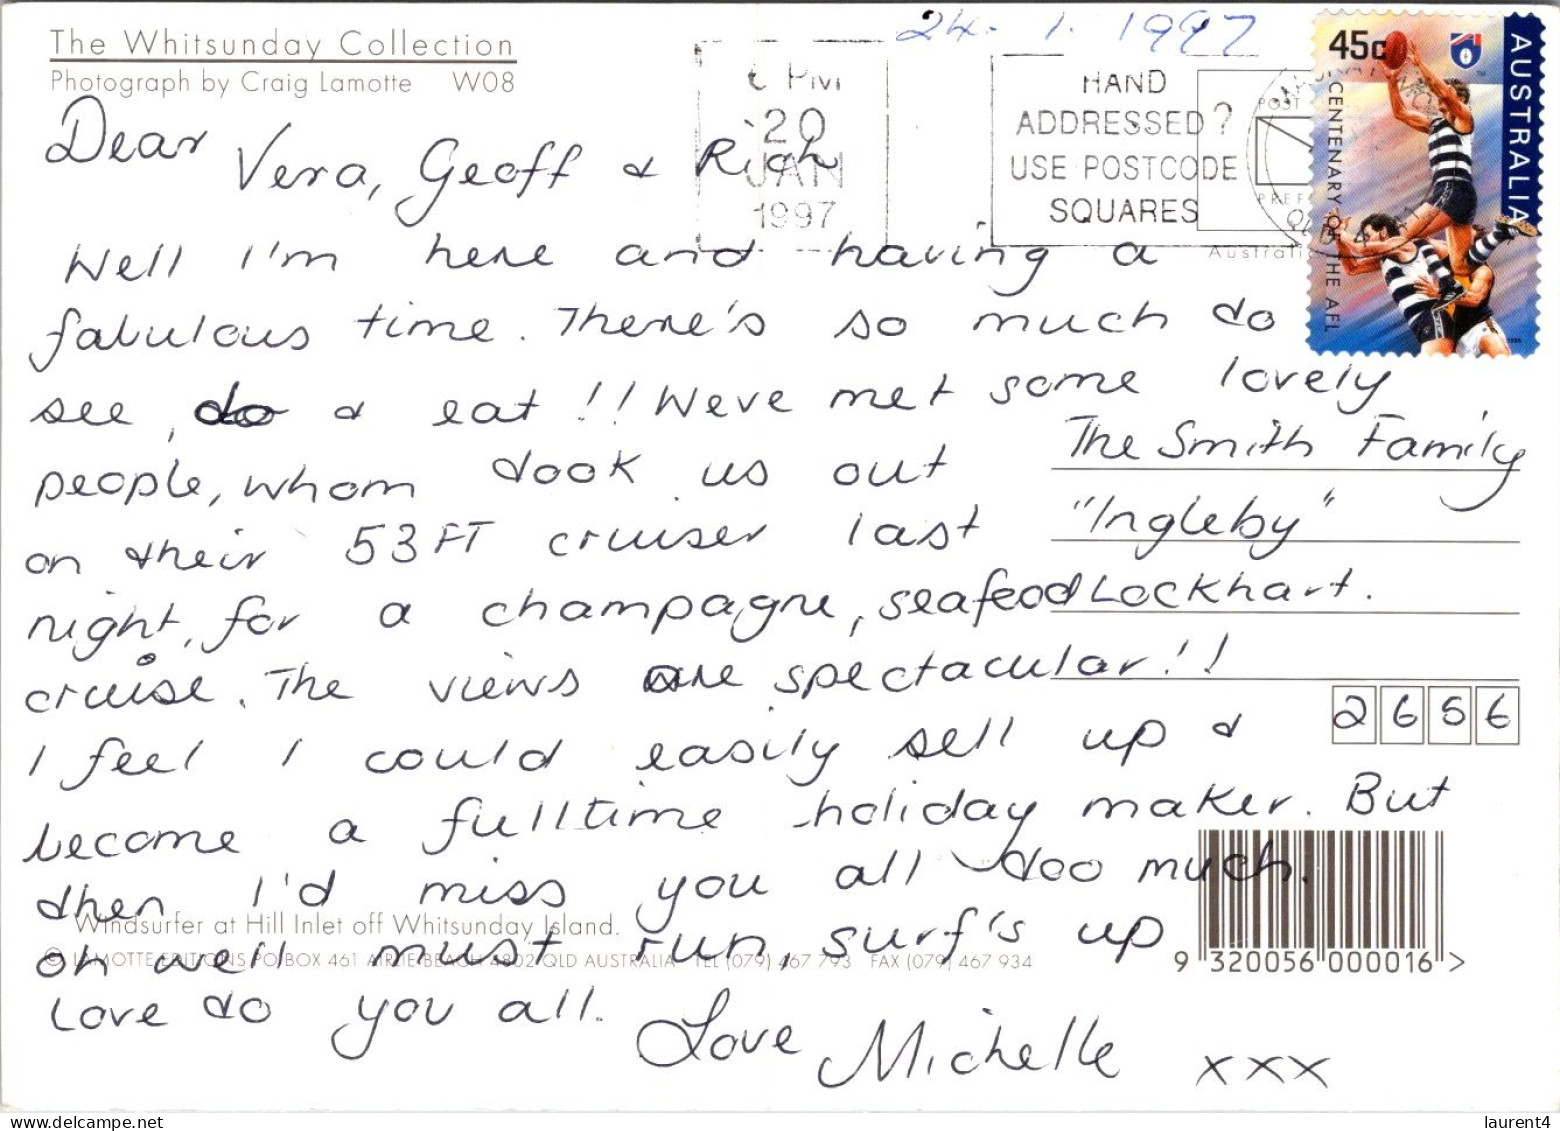 The Whitsunday Collection
Photograph by Craig Lamotte W08
24. 1. 1997
PM
20
JAN
1997
HAND
ADDRESSED?
USE POSTCODE
SQUARES
POST
PREF
Australi
45c
AUSTRALIA
CENTENARY OF THE AFL
Dear Vera, Geoff & Rich
Well I'm here and having a
fabulous time. There's so much to
see, do & eat!! Weve met some lovely
people, whom took us out
on their 53FT cruiser last
night, for a champagne, seafood
cruise. The views are spectacular!!
I feel I could easily sell up &
become a fulltime holiday maker. But
then I'd miss you all too much.
oh well must run, surf's up
Love to you all.
Love Michelle xxx
The Smith Family
"Ingleby"
Lockhart.
2656
Windsurfer at Hill Inlet off Whitsunday Island.
© LAMOTTE EDITIONS PO BOX 461 AIRLIE BEACH 4802 QLD AUSTRALIA TEL (079) 467 793 FAX (079) 467 934
9 320056 000016 >
laurent4